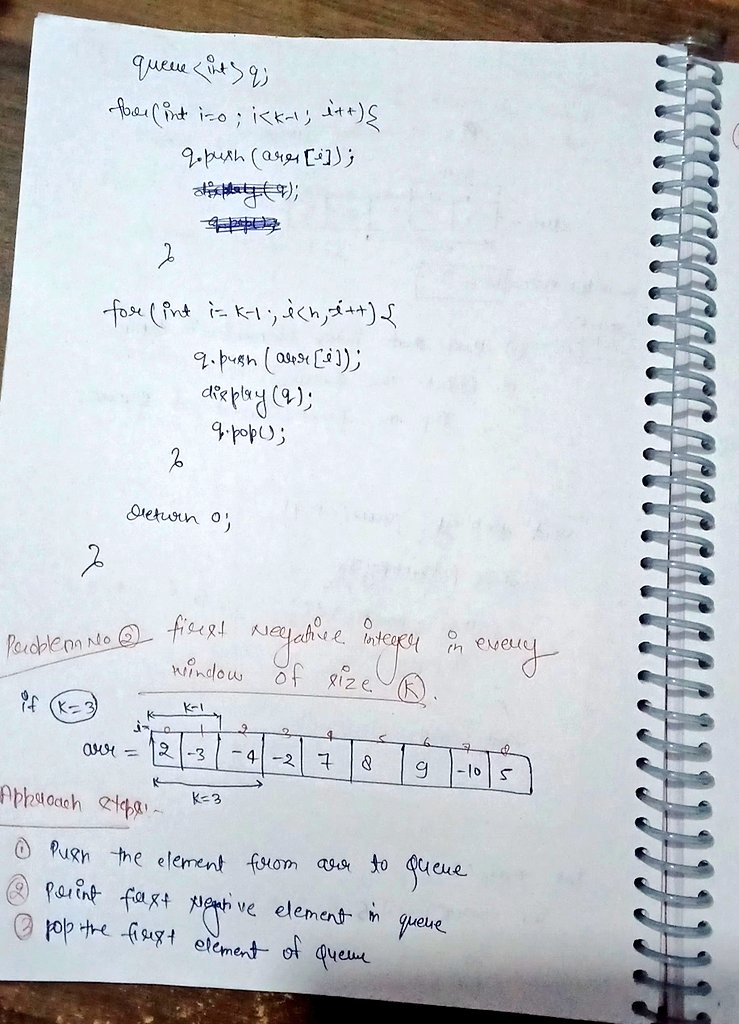 queue<int> q;
for(int i=0; i<k-1; i++){
q.push(arr[i]);
display(q);
q.pop();
}
for(int i=k-1; i<n; i++){
q.push(arr[i]);
display(q);
q.pop();
}
return 0;
}
Problem No ② first Negative integer in every
window of size K.
if K=3
K-1
i= 0 1 2 3 4 5 6 7 8
arr = 2 -3 -4 -2 7 8 9 -10 5
K=3
Approach steps:-
① Push the element from arr to Queue
② Print first Negative element in queue
③ pop the first element of Queue